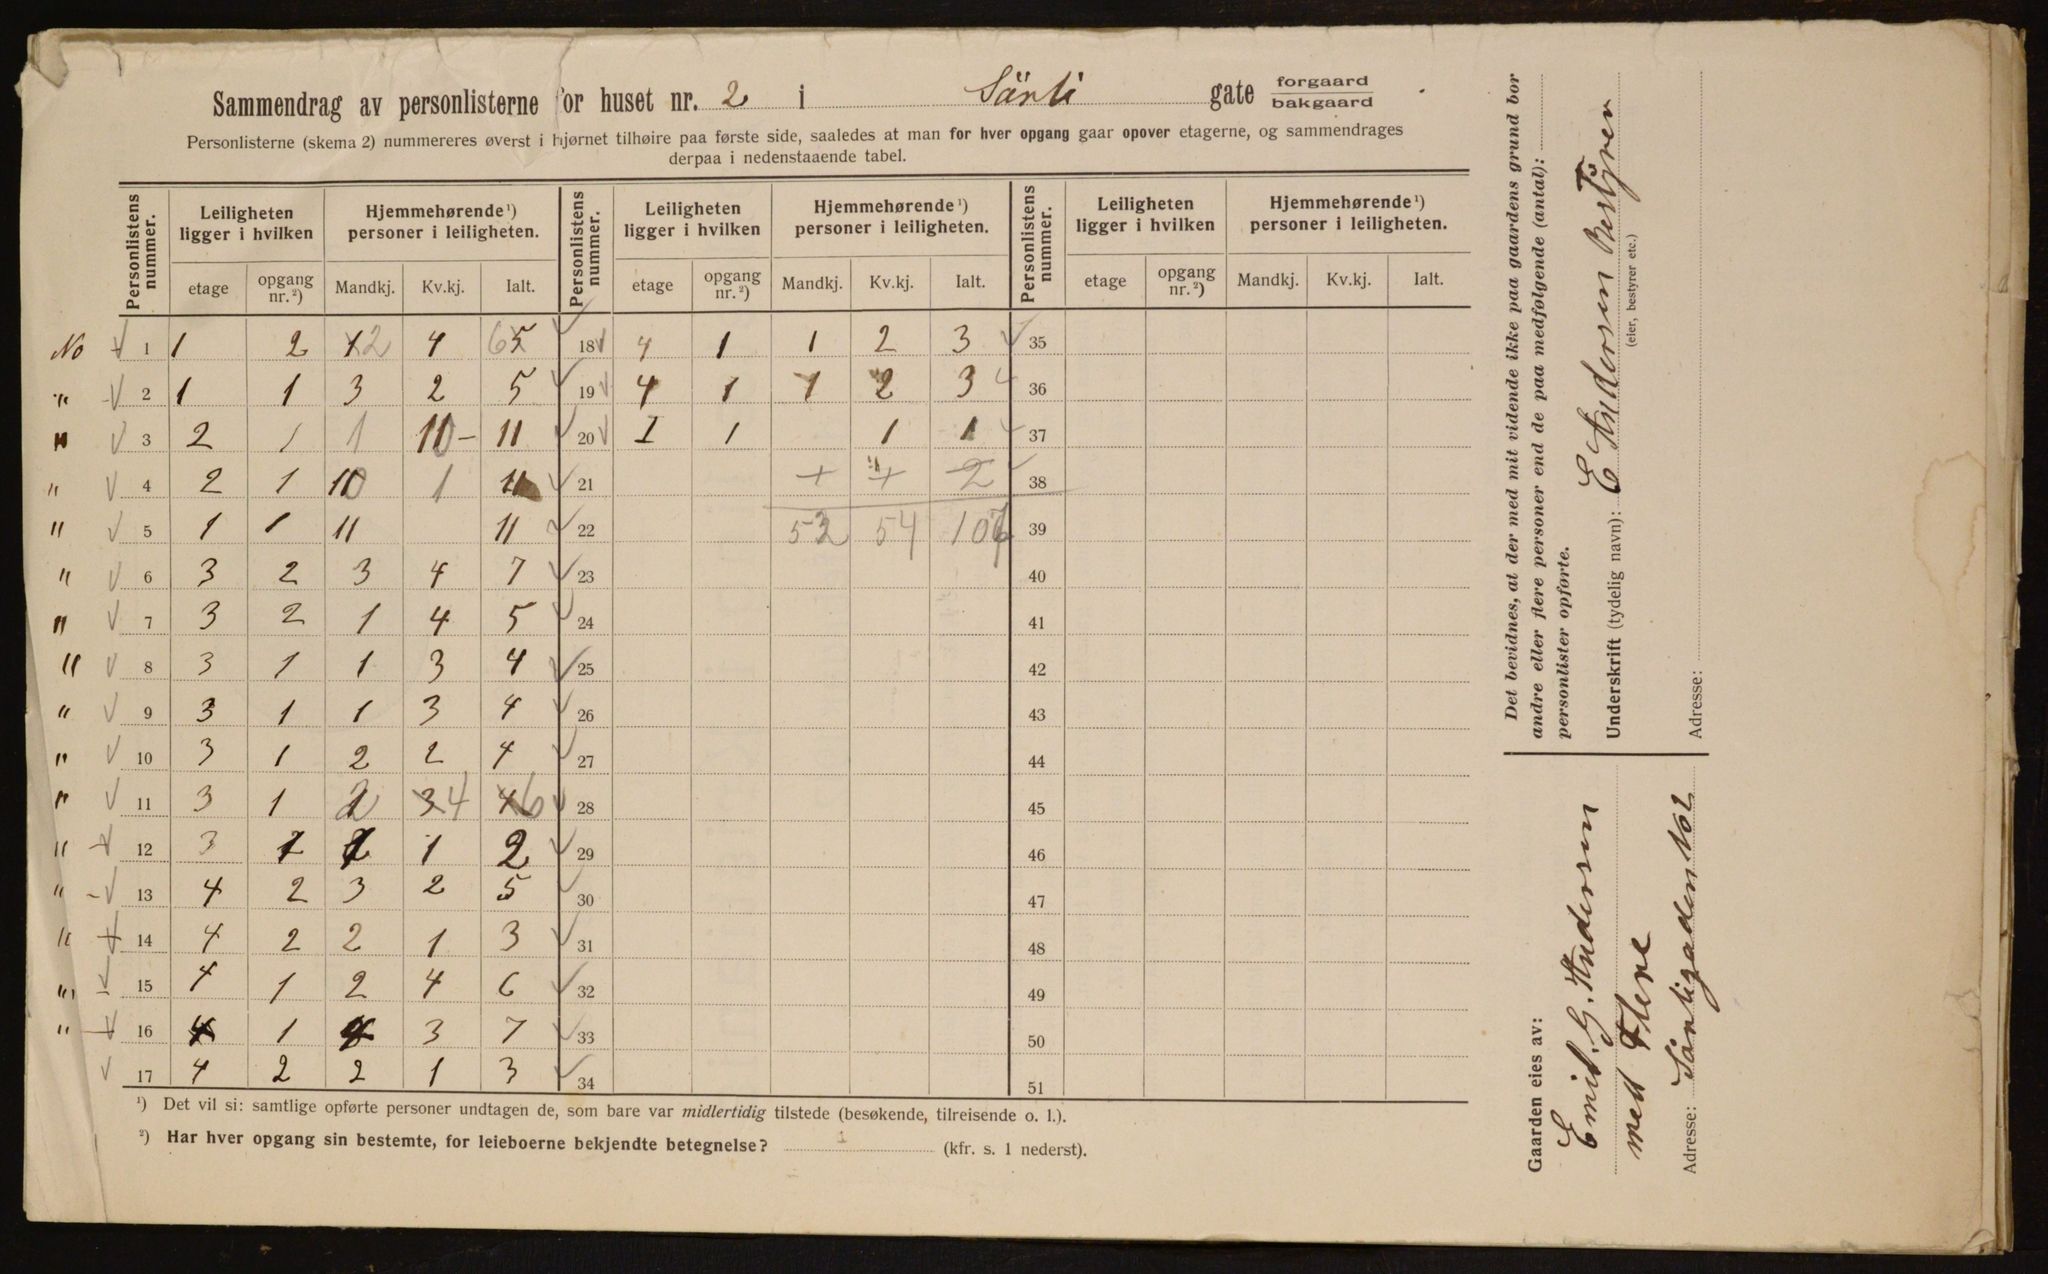 Sammendrag av personlisterne for huset nr. 2 i Sårli gate forgaard
bakgaard
Personlisterne (skema 2) nummereres øverst i hjørnet tilhøire paa første side, saaledes at man for hver opgang gaar opover etagerne, og sammendrages
derpaa i nedenstaaende tabel.
Personlistens nummer. Leiligheten ligger i hvilken Hjemmehørende ¹) personer i leiligheten. Personlistens nummer. Leiligheten ligger i hvilken Hjemmehørende ¹) personer i leiligheten. Personlistens nummer. Leiligheten ligger i hvilken Hjemmehørende ¹) personer i leiligheten.
etage opgang nr. ²) Mandkj. Kv.kj. Ialt. etage opgang nr. ²) Mandkj. Kv.kj. Ialt. etage opgang nr. ²) Mandkj. Kv.kj. Ialt.
No 1 1 2 1 2 4 6 5 18 4 1 1 2 3 35
" 2 1 1 3 2 5 19 4 1 1 2 3 36
" 3 2 1 1 10 – 11 20 I 1 1 1 37
" 4 2 1 10 1 11 21 2 38
" 5 1 1 11 11 22 53 54 107 39
" 6 3 2 3 4 7 23 40
" 7 3 2 1 4 5 24 41
" 8 3 1 1 3 4 25 42
" 9 3 1 1 3 4 26 43
" 10 3 1 2 2 4 27 44
" 11 3 1 2 3 4 4 6 28 45
" 12 3 1 1 1 2 29 46
" 13 4 2 3 2 5 30 47
" 14 4 2 2 1 3 31 48
" 15 4 1 2 4 6 32 49
" 16 4 1 4 3 7 33 50
17 4 2 2 1 3 34 51
¹) Det vil si: samtlige opførte personer undtagen de, som bare var midlertidig tilstede (besøkende, tilreisende o. l.).
²) Har hver opgang sin bestemte, for leieboerne bekjendte betegnelse? (kfr. s. 1 nederst).
Det bevidnes, at der med mit vidende ikke paa gaardens grund bor
andre eller flere personer end de paa medfølgende (antal):
personlister opførte.
Underskrift (tydelig navn): E Andersen Bestyrer
(eier, bestyrer etc.)
Adresse:
Gaarden eies av:
Emil. G. Andersen
med Flere
Adresse: Sårligaden No 2